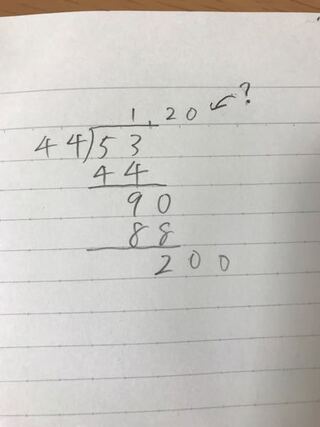 1.20 ?
44)53
44
90
88
200